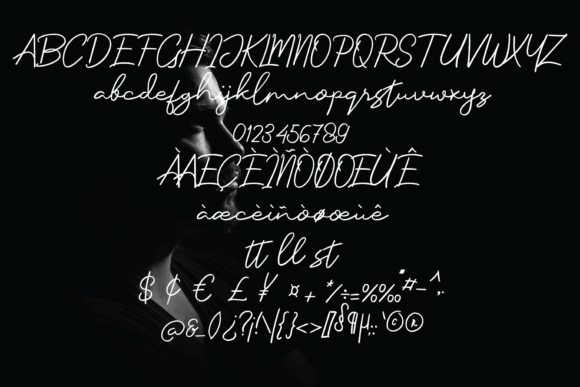 ABCDEFGHIJKLMNOPQRSTUVWXYZ
abcdefghijklmnopqrstuvwxyz
0123456789
ÀÆÇÈÌÑÒØŒÙÊ
àæçèìñòøœùê
tt ll st
$ ¢ € £ ¥ ¤ + * / ÷ = % ‰ " # - ^ , .
@ & _ ( ) ¿ ? ¡ ! \ | { } < > [ ] § ¶ µ : ; ' © ®